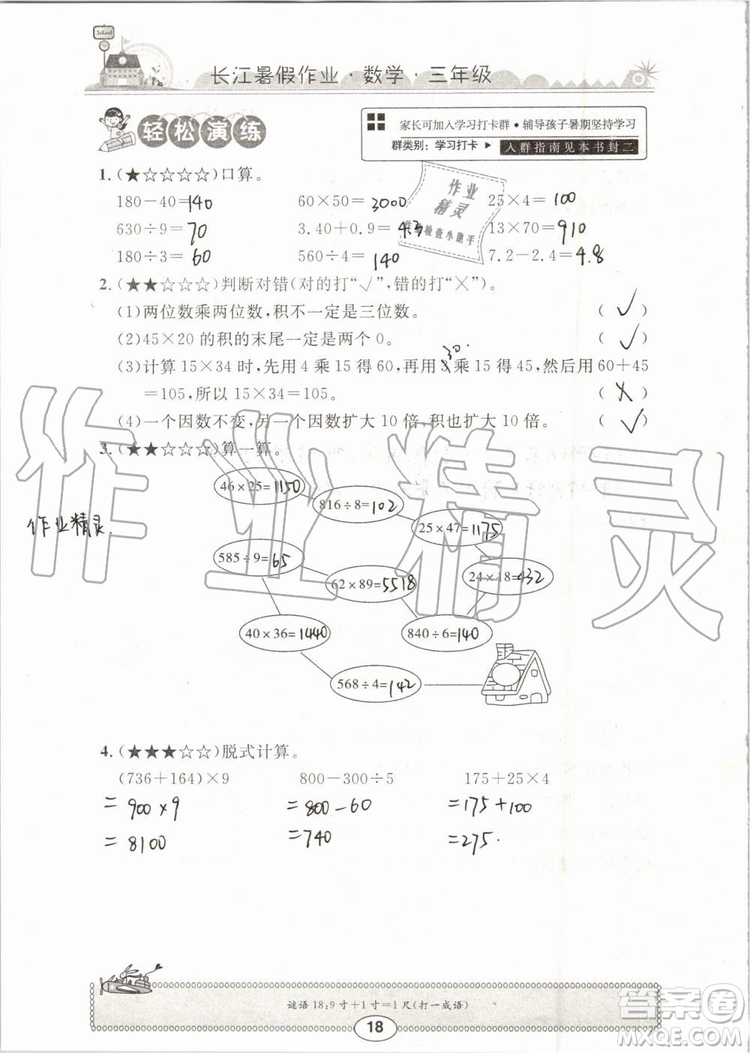 School
长江暑假作业·数学·三年级
轻松演练
家长可加入学习打卡群·辅导孩子暑期坚持学习
群类别：学习打卡 ▶ 入群指南见本书封二
1.（★☆☆☆☆）口算。
180－40＝140 60×50＝3000 25×4＝100
630÷9＝70 3.40＋0.9＝4.3 13×70＝910
180÷3＝60 560÷4＝140 7.2－2.4＝4.8
作业精灵
作业检查小助手
2.（★★☆☆☆）判断对错（对的打“√”，错的打“×”）。
(1)两位数乘两位数，积不一定是三位数。（√）
(2)45×20 的积的末尾一定是两个 0。（√）
(3)计算 15×34 时，先用 4 乘 15 得 60，再用 3 乘 15 得 45，然后用 60＋45
30
＝105，所以 15×34＝105。（×）
(4)一个因数不变，另一个因数扩大 10 倍，积也扩大 10 倍。（√）
3.（★★☆☆☆）算一算。
46×25＝1150
816÷8＝102
25×47＝1175
作业精灵.
585÷9＝65
62×89＝5518
24×18＝432
40×36＝1440
840÷6＝140
568÷4＝142
4.（★★★☆☆）脱式计算。
(736＋164)×9 800－300÷5 175＋25×4
＝900×9 ＝800－60 ＝175＋100
＝8100 ＝740 ＝275.
作业精灵
谜语 18：9 寸＋1 寸＝1 尺（打一成语）
18
答案圈
MXQE.COM